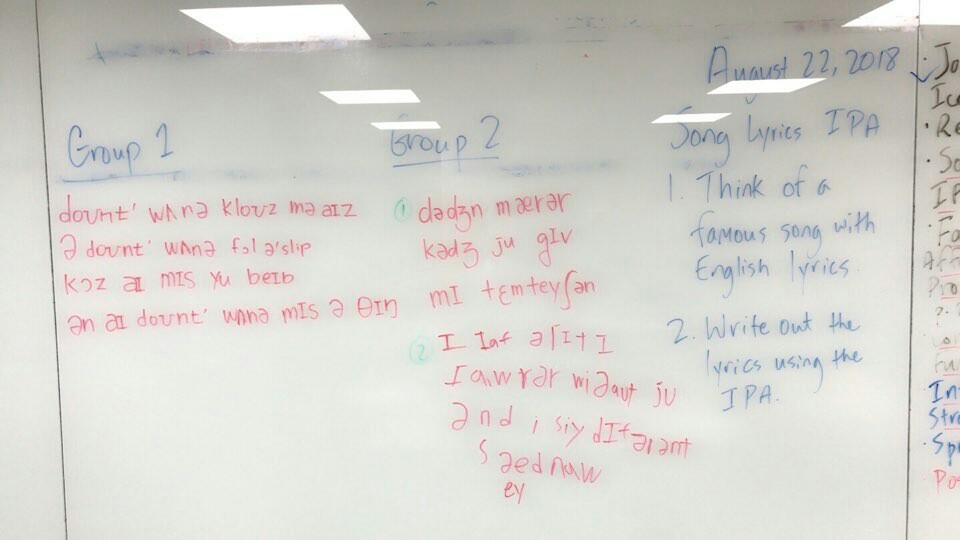 August 22, 2018
Group 1
doʊnt' wʌnə kloʊz mə aɪz
ə doʊnt' wʌnə fɔl ə'slip
kɔz aɪ mɪs yu beɪb
ən aɪ doʊnt' wʌnə mɪs ə θɪŋ
Group 2
① dədʒn mærər
kədʒ ju gɪv
mI tɛmteyʃən
②
ju
ənd i siy
ey
Song Lyrics IPA
1. Think of a
famous song with
English lyrics.
2. Write out the
lyrics using the
IPA.
Jo
Ice
Re
So
IP
Fa
Aff
Pro
Int
Stre
Spr
Po